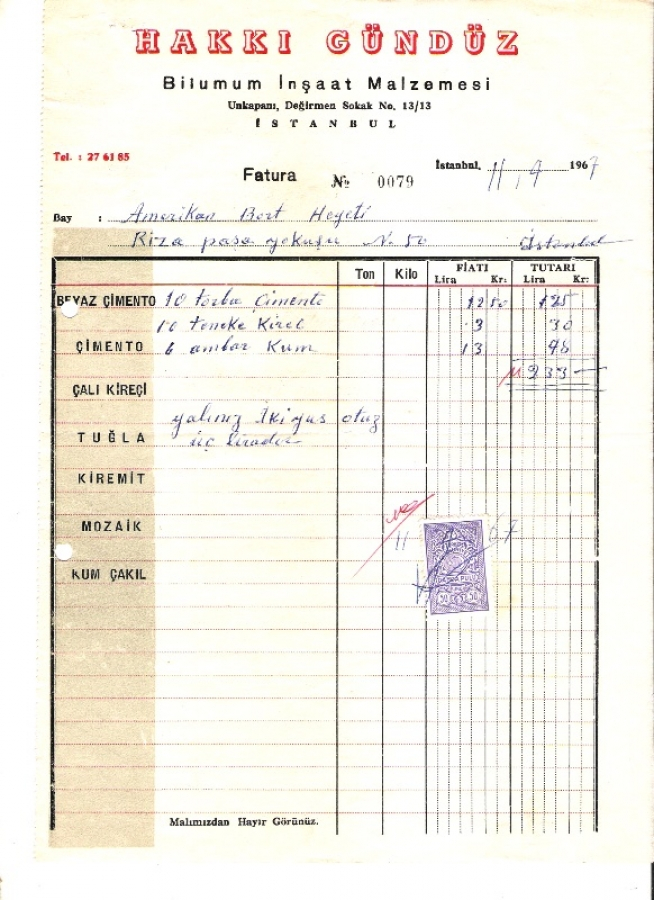 HAKKI GÜNDÜZ
Bilumum İnşaat Malzemesi
Unkapanı, Değirmen Sokak No. 13/13
İSTANBUL
Tel. : 27 61 85
Fatura № 0079
İstanbul, 11, 9 1967
Bay : Amerikan Bort Heyeti
Riza paşa yokuşu No 50 İstanbul
Ton Kilo FİATI TUTARI
Lira Kr: Lira Kr:
BEYAZ ÇİMENTO 10 torba Çimento 12 50 125
10 teneke Kirec 3 30
ÇİMENTO 6 ambar Kum 13 78
233
ÇALI KİREÇİ
yalınız İkiyüs otuz
TUĞLA üç liradır
KİREMİT
MOZAİK
11 67
KUM ÇAKIL
Malımızdan Hayır Görünüz.